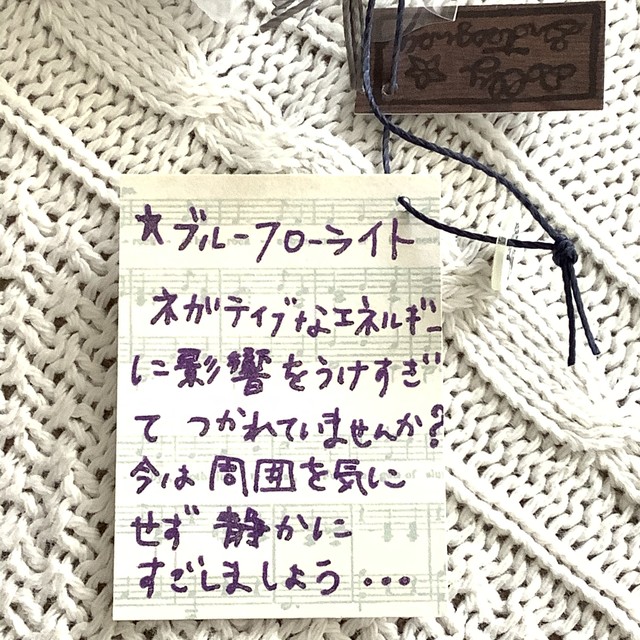 ★ブルーフローライト
ネガティブなエネルギー
に影響をうけすぎ
て つかれていませんか?
今は周囲を気に
せず 静かに
すごしましょう...